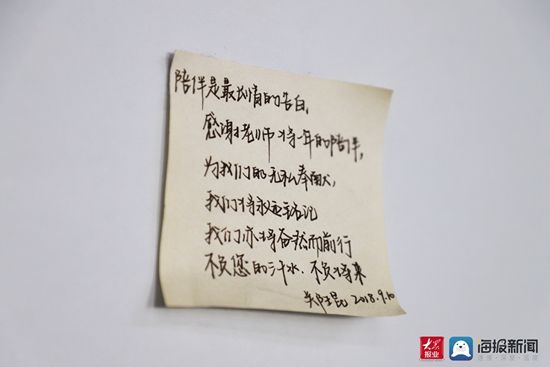 陪伴是最长情的告白,
感谢老师将一年的陪伴,
为我们的无私奉献,
我们将永远铭记
我们亦将奋然而前行
不负您的汗水、不负将来
2018.9.10
大众报业
海报新闻